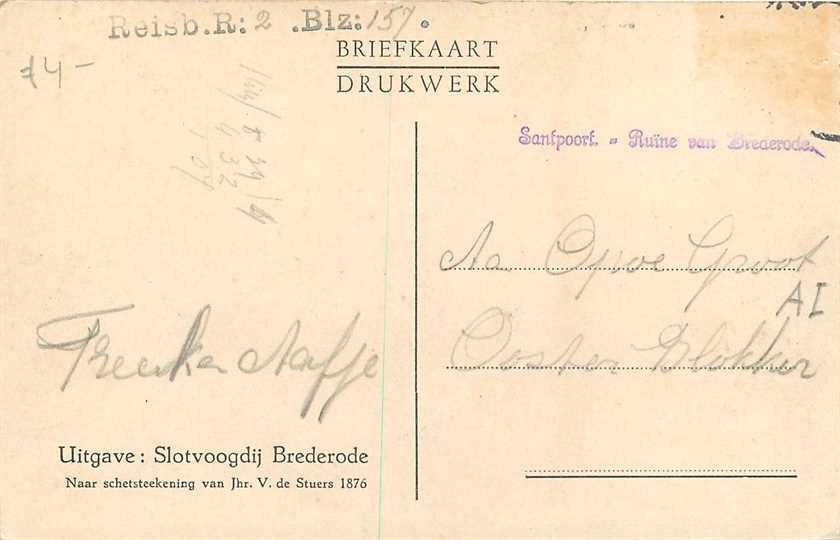 Reisb.R: 2 .Blz: 157.
BRIEFKAART
DRUKWERK
14-
8 39/4
4 32
1 07
Santpoort. - Ruïne van Brederode.
Aa Opoe Groot
AI
Ooster Blokker
Aafje
Uitgave: Slotvoogdij Brederode
Naar schetsteekening van Jhr. V. de Stuers 1876